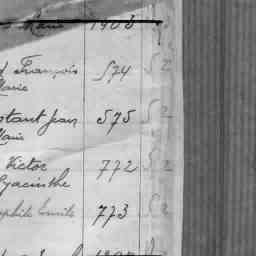 Marie 1903
François 574 52
Marie
stant Jean 575 52
Marie
Victor 772 52
Hyacinthe
ophile Emile 773 52